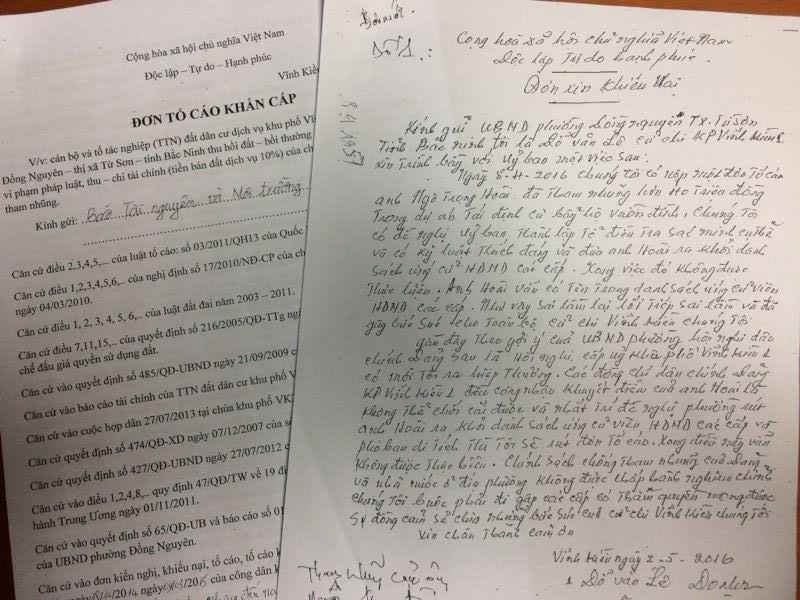 Cộng hòa xã hội chủ nghĩa Việt Nam
Độc lập – Tự do – Hạnh phúc
Vĩnh Kiều
ĐƠN TỐ CÁO KHẨN CẤP
V/v: cán bộ và tổ tác nghiệp (TTN) đất dân cư dịch vụ khu phố V
Đồng Nguyên – thị xã Từ Sơn – tỉnh Bắc Ninh thu hồi đất – bồi thường
vi phạm pháp luật, thu – chi tài chính (tiền bán đất dịch vụ 10%) của
tham nhũng.
Kính gửi: Báo Tài nguyên và Môi trường
Căn cứ điều 2,3,4,5,... của luật tố cáo: số 03/2011/QH13 của Quốc
Căn cứ điều 1,2,3,4,5,6,.. của nghị định số 17/2010/NĐ-CP của
ngày 04/03/2010.
Căn cứ điều 1, 2, 3, 4, 5, 6,.. của luật đất đai năm 2003 – 2011.
Căn cứ điều 7,11,15,.. của quyết định số 216/2005/QĐ-TTg
chế đấu giá quyền sử dụng đất.
Căn cứ vào quyết định số 485/QĐ-UBND ngày 21/09/2009
Căn cứ vào báo cáo tài chính của TTN đất dân cư khu phố V
Căn cứ vào cuộc họp dân 27/07/2013 tại chùa khu phố VK
Căn cứ quyết định số 474/QĐ-XD ngày 07/12/2007 của
Căn cứ quyết định số 427/QĐ-UBND ngày 27/07/2012
Căn cứ vào điều 1,2,4,8,.. quy định 47/QĐ/TW về 19
hành Trung Ương ngày 01/11/2011.
Căn cứ vào quyết định số 65/QĐ-UB và báo cáo số 01
của UBND phường Đồng Nguyên.
Căn cứ vào đơn kiến nghị, khiếu nại, tố cáo, tố cáo
2014 ngày 2015 của công dân
Cộng hoà xã hội chủ nghĩa Việt Nam
Độc lập Tự do hạnh phúc.
Đơn xin Khiếu Nại
Kính gửi UBND phường Đồng nguyên TX. Từ Sơn
Tỉnh Bắc ninh tôi là Đỗ văn Lê cử chi KP Vĩnh Kiều 1
xin trình bầy với uỷ ban một việc sau.
Ngày 8-4-2016 chúng tôi có nộp một đơn Tố cáo
anh Ngô Trọng Hoài đã Tham nhũng hơn triệu đồng
Trong dự án Tái định cư vườn đình, chúng Tôi
có đề nghị uỷ ban Thành lập Tổ điều tra xác minh cụ thể
và có kỷ luật Thích đáng và đưa anh Hoài ra khỏi danh
sách ứng cử HĐND các cấp. Xong việc đó không được
Thực hiện. Anh Hoài vẫn có Tên trong danh sách ứng cử viên
HĐND các cấp. Như vậy sai lầm lại nối Tiếp sai lầm và đã
gây bức xúc cho Toàn thể cử chi Vĩnh Kiều chúng Tôi
gần đây Theo gợi ý của UBND phường hội nghị dân
chính Đảng sau là Hội nghị cấp uỷ khu phố Vĩnh Kiều 1
có mời Tôi ra hiệp Thương. Các đồng chí dân chính Đảng
KP Vĩnh Kiều 1 đều công nhận khuyết điểm của anh Hoài là
không Thể chối cãi được và nhất trí đề nghị phường rút
anh Hoài ra khỏi danh sách ứng cử viên HĐND các cấp và
phó ban di Tích Thì Tôi sẽ rút đơn Tố cáo. Xong điều này vẫn
không được Thực hiện. Chính sách chống Tham nhũng của Đảng
và nhà nước ở địa phương không được chấp hành nghiêm chỉnh
chúng Tôi buộc phải đi gặp các cấp có Thẩm quyền mong được
sự đồng cảm sẽ chia những bức xúc của cử chi Vĩnh Kiều chúng Tôi
Xin chân Thành cảm ơn
Vĩnh Kiều ngày 2-5-2016
Đỗ văn Lê